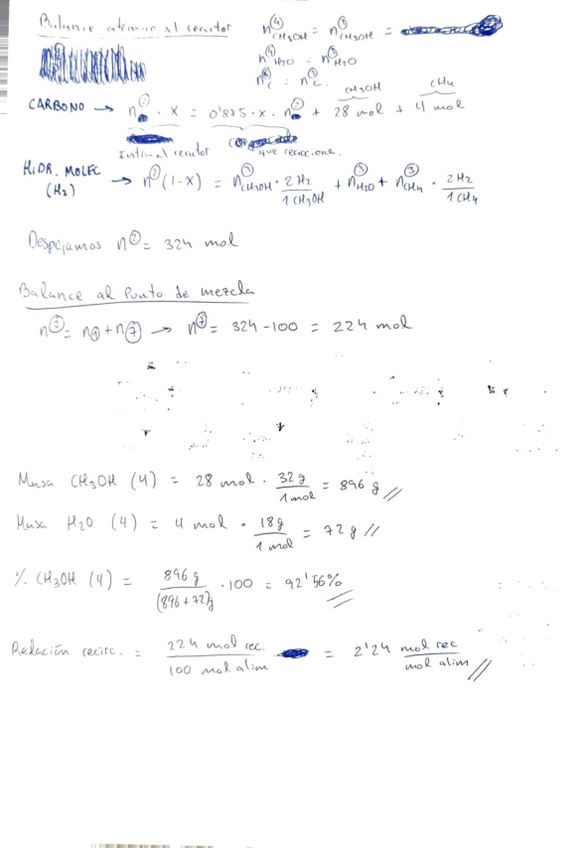 Balance atómico al reactor
n④CH3OH = n③CH3OH =
n④H2O = n③H2O
CARBONO → n② · x = 0'875 · x · n② + 28 mol + 4 mol
CH3OH CH4
Entra al reactor que reacciona.
HIDR. MOLEC (H2) → n②(1-x) = n③CH3OH · 2H2/1CH3OH + n③H2O + n③CH4 · 2H2/1CH4
Despejamos n② = 324 mol
Balance al Punto de mezcla
n② = n① + n⑦ → n⑦ = 324 - 100 = 224 mol
Masa CH3OH (4) = 28 mol · 32g/1mol = 896 g //
Masa H2O (4) = 4 mol · 18g/1mol = 72 g //
% CH3OH (4) = 896 g/(896+72)g · 100 = 92'56% //
Relación recirc. = 224 mol rec./100 mol alim = 2'24 mol rec/mol alim //